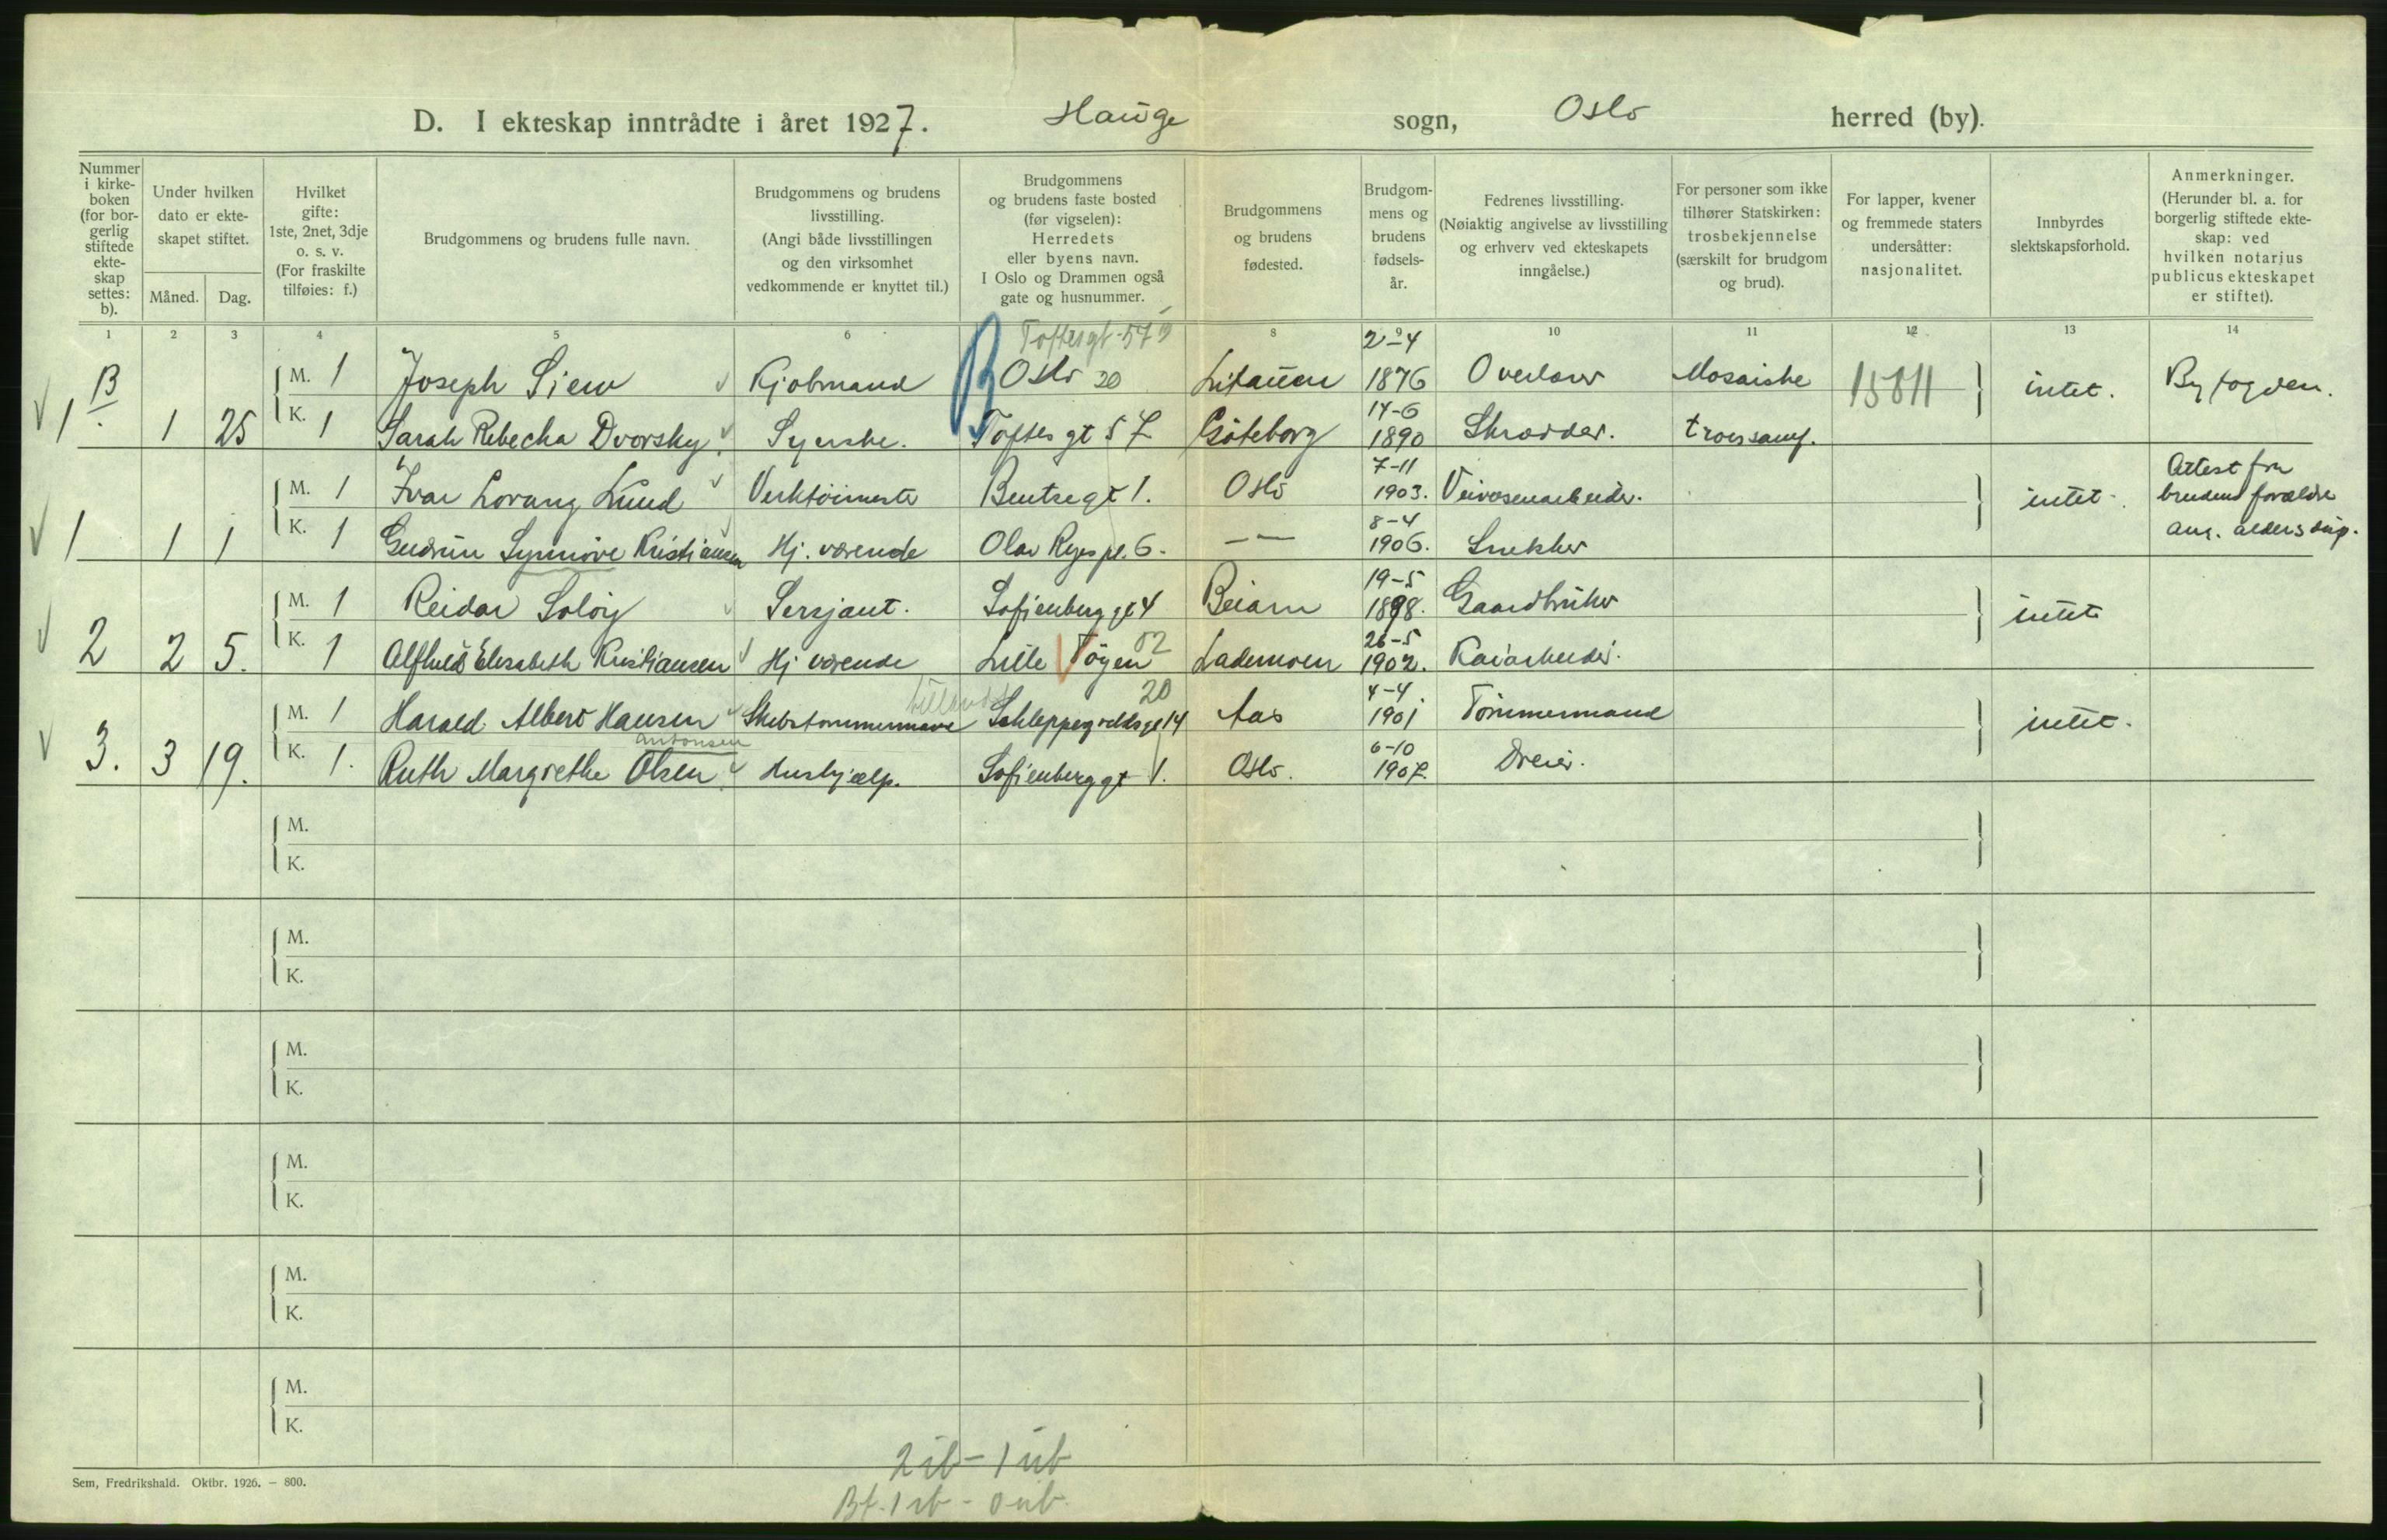 D. I ekteskap inntrådte i året 1927. Hauge sogn, Oslo herred (by).
Nummer i kirkeboken (for borgerlig stiftede ekteskap settes: b).
Under hvilken dato er ekteskapet stiftet.
Måned. Dag.
Hvilket gifte: 1ste, 2net, 3dje o. s. v. (For fraskilte tilføies: f.)
Brudgommens og brudens fulle navn.
Brudgommens og brudens livsstilling. (Angi både livsstillingen og den virksomhet vedkommende er knyttet til.)
Brudgommens og brudens faste bosted (før vigselen): Herredets eller byens navn. I Oslo og Drammen også gate og husnummer.
Brudgommens og brudens fødested.
Brudgommens og brudens fødselsår.
Fedrenes livsstilling. (Nøiaktig angivelse av livsstilling og erhverv ved ekteskapets inngåelse.)
For personer som ikke tilhører Statskirken: trosbekjennelse (særskilt for brudgom og brud).
For lapper, kvener og fremmede staters undersåtter: nasjonalitet.
Innbyrdes slektskapsforhold.
Anmerkninger. (Herunder bl. a. for borgerlig stiftede ekteskap: ved hvilken notarius publicus ekteskapet er stiftet).
1 2 3 4 5 6 8 9 10 11 12 13 14
Toftesgt 57 2-4
B M. 1 Joseph Siew Kjøbmand B Oslo 20 Litauen 1876 Overlærer Mosaiske 15811 intet. Byfogden.
14-6
1 1 25 K. 1 Sarah Rebecka Dvorsky Syerske. Toftes gt 57 Göteborg 1890 Skrædder. troessamf.
7-11 Attest fra
M. 1 Ivar Lorang Lund Verktöimester Bentsegt 1. Oslo 1903. Veivæsenarbeider. intet. brudens forældre
8-4
1 1 1 K. 1 Gudrun Synnöve Kristiansen Hj. værende Olav Ryes pl. 6. — 1906. Snekker ang. aldersdisp.
19-5
M. 1 Reidar Solöy Sersjant. Sofienberg gt 4 Beiarn 1898. Gaardbruker intet
26-5
2 2 5. K. 1 Alfhild Elisabeth Kristiansen Hj værende Lille Töyen 52 Lademoen 1902. Kaiarbeider.
20 4-4
M. 1 Harald Albert Hansen Skibstømmermand Schleppegrellsgt 14 Aas 1901 Tömmermand intet.
Antonsen 6-10
3. 3 19. K. 1. Ruth Margrethe Olsen Hushjælp. Sofienberggt 1. Oslo. 1907. Dreier.
M.
K.
M.
K.
M.
K.
M.
K.
M.
K.
M.
K.
2 ib - 1 ub
Sem, Fredrikshald. Oktbr. 1926. — 800.
Bf. 1 ib - 0 ub.